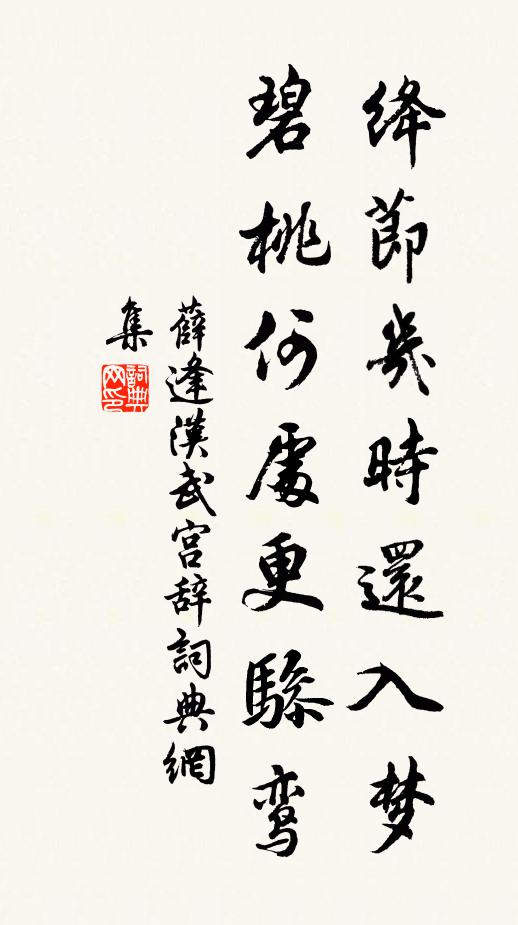 绛節幾時還入梦
碧桃何處更驂鸾
薛逢漢武宫辞詞典網
集
詞典网印